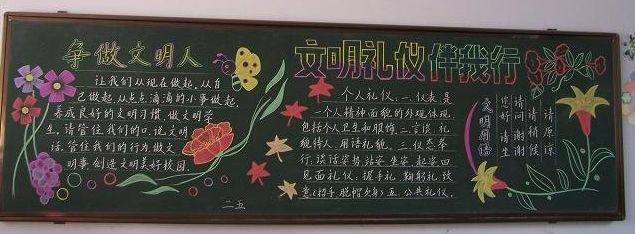 争做文明人
让我们从现在做起,从自
己做起,从点点滴滴的小事做起,
养成良好的文明习惯,做文明学
生,请管住我们的口,说文明
话,管住我们的行为,做文
明事,创造文明美好校园.
二五
文明礼仪伴我行
个人礼仪:一.仪表是
一个人精神面貌的外观体现,
包括个人卫生和服饰.二.言谈:礼
貌待人,用语礼貌.三.仪态举
行:谈话姿势,站姿,坐姿.起姿.四
见面礼仪:握手礼,鞠躬礼,致
意(招手,脱帽,欠身)五.公共礼仪.
文明用语
您好 请坐
请问 谢谢
请稍候
请原谅